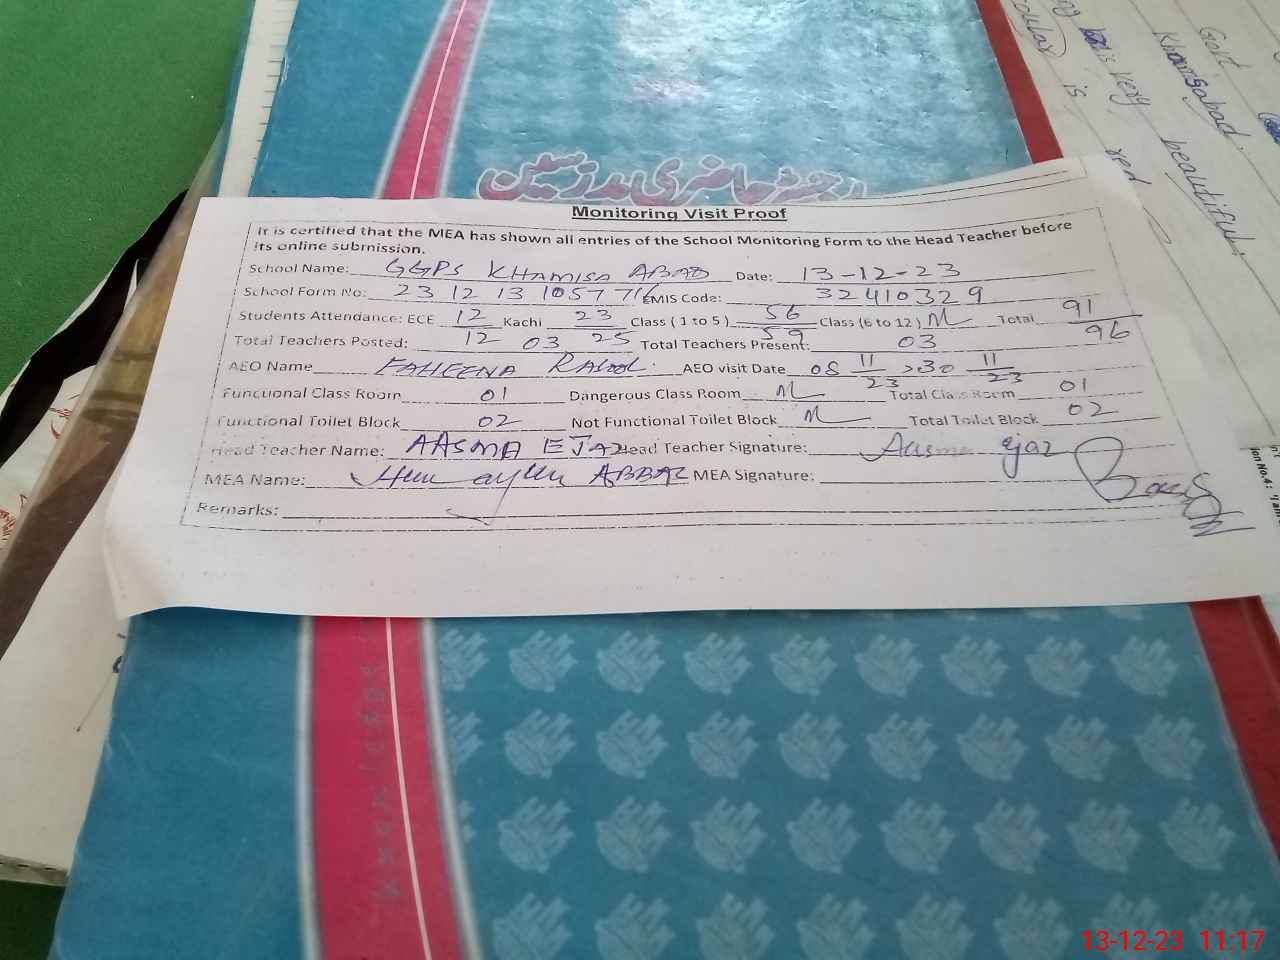 رجسٹر حاضری مدرسین
Monitoring Visit Proof
It is certified that the MEA has shown all entries of the School Monitoring Form to the Head Teacher before
its online submission.
School Name: GGPS KHAMISA ABAD Date: 13-12-23
School Form No: 23 12 13 1057 716 EMIS Code: 32410329
Students Attendance: ECE 12/12 Kachi 23/25 Class (1 to 5) 56/59 Class (6 to 12) Total 91/96
Total Teachers Posted: 03 Total Teachers Present: 03
AEO Name FAHEENA AEO visit Date 08 11/23 30 11/23
Functional Class Room 01 Dangerous Class Room Total Class Room 01
Functional Toilet Block 02 Not Functional Toilet Block Total Toilet Block 02
Head Teacher Name: AASMA EJAZ Head Teacher Signature: Aasma ejaz
MEA Name: ABBAS MEA Signature:
Remarks:
Gold
Khamisabad.
beautiful.
is very
red
is
13-12-23 11:17